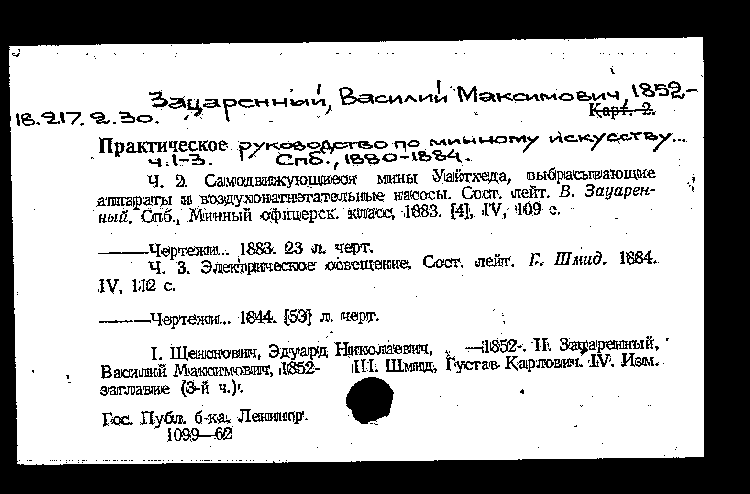 Зацаренный, Василий Максимович, 1852-
18.217.2.30.
Карт. 2.
Практическое руководство по минному искусству...
ч. 1-3. Спб., 1880-1884.
Ч. 2. Самодвижующиеся мины Уайтхеда, выбрасывающие
аппараты и воздухонагнетательные насосы. Сост. лейт. В. Зацарен-
ный. Спб., Минный офицерск. класс, 1883. [4], IV, 109 с.
———Чертежи... 1883. 23 л. черт.
Ч. 3. Электрическое освещение. Сост. лейт. Г. Шмид. 1884.
IV, 112 с.
———Чертежи... 1844. [53] л. черт.
I. Щенснович, Эдуард Николаевич, —1852-. II. Зацаренный,
Василий Максимович, 1852- III. Шмид, Густав Карлович. IV. Изм.
заглавие (3-й ч.).
Гос. Публ. б-ка. Ленингр.
1099—62